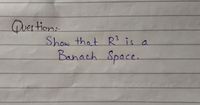 Question:-
Show that R² is a
Banach Space.